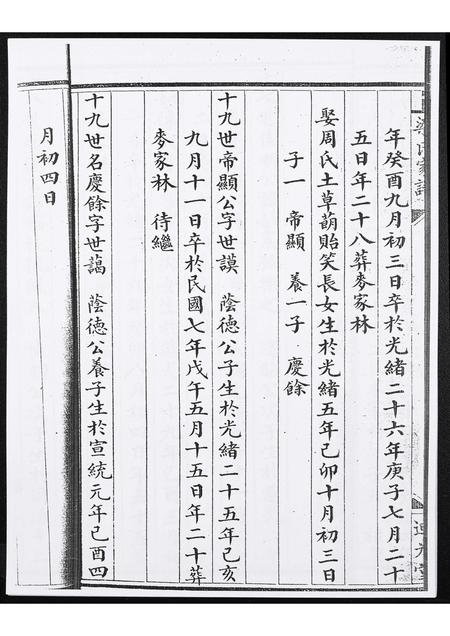 梁氏家譜
年癸酉九月初三日卒於光緒二十六年庚子七月二十
五日年二十八葬麥家林
娶周氏土草萠貽笑長女生於光緒五年己卯十月初三日
子一 帝顯 養一子 慶餘
十九世帝顯公字世謨 蔭德公子生於光緒二十五年己亥
九月十一日卒於民國七年戊午五月十五日年二十葬
麥家林 待繼
十九世名慶餘字世藹 蔭德公養子生於宣統元年己酉四
月初四日